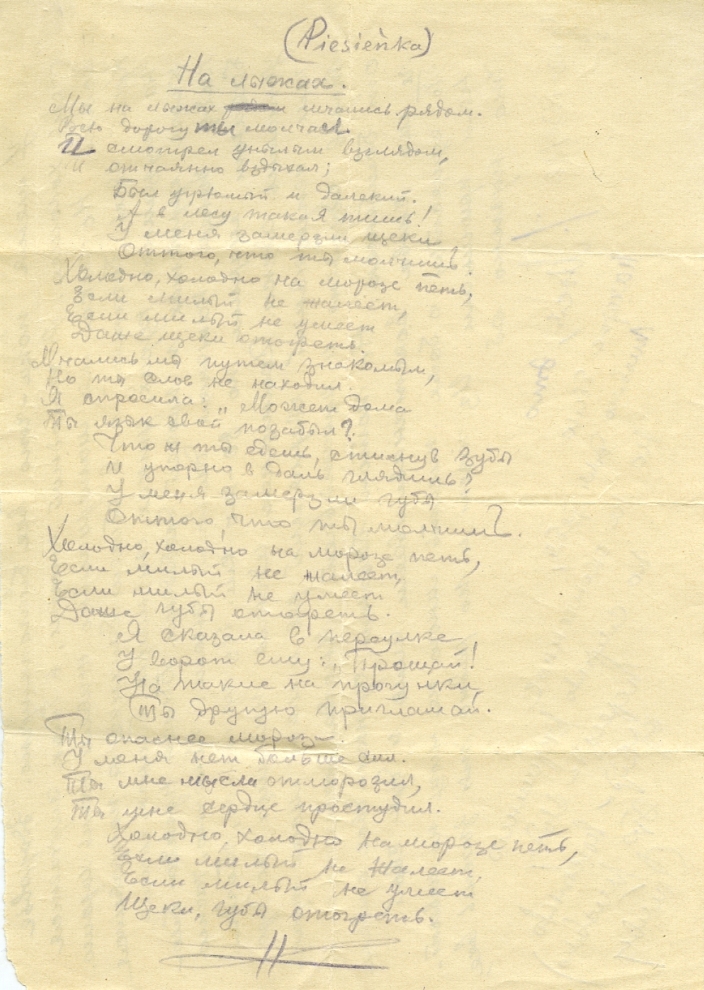 (Piesieńka)
На лыжах.
Мы на лыжах мчались рядом.
Всю дорогу ты молчал.
И смотрел унылым взглядом,
И отчаянно вздыхал;
Был угрюмый и далекий.
А в лесу такая тишь!
У меня замерзли щеки
Оттого, что ты молчишь.
Холодно, холодно на морозе петь,
Если милый не жалеет,
Если милый не умеет
Даже щеки отогреть.
Мчались мы путем знакомым,
Но ты слов не находил.
Я спросила: „Может дома
Ты язык свой позабыл?
Что ж ты едешь, стиснув зубы
И упорно в даль глядишь?
У меня замерзли губы
Оттого, что ты молчишь.
Холодно, холодно на морозе петь,
Если милый не жалеет,
Если милый не умеет
Даже губы отогреть.
Я сказала в переулке
У ворот ему: „Прощай!
На такие на прогулки
Ты другую приглашай.
Ты опаснее мороза.
У меня нет больше сил.
Ты мне мысли отморозил,
Ты мне сердце простудил.
Холодно, холодно на морозе петь,
Если милый не жалеет,
Если милый не умеет
Щеки, губы отогреть.